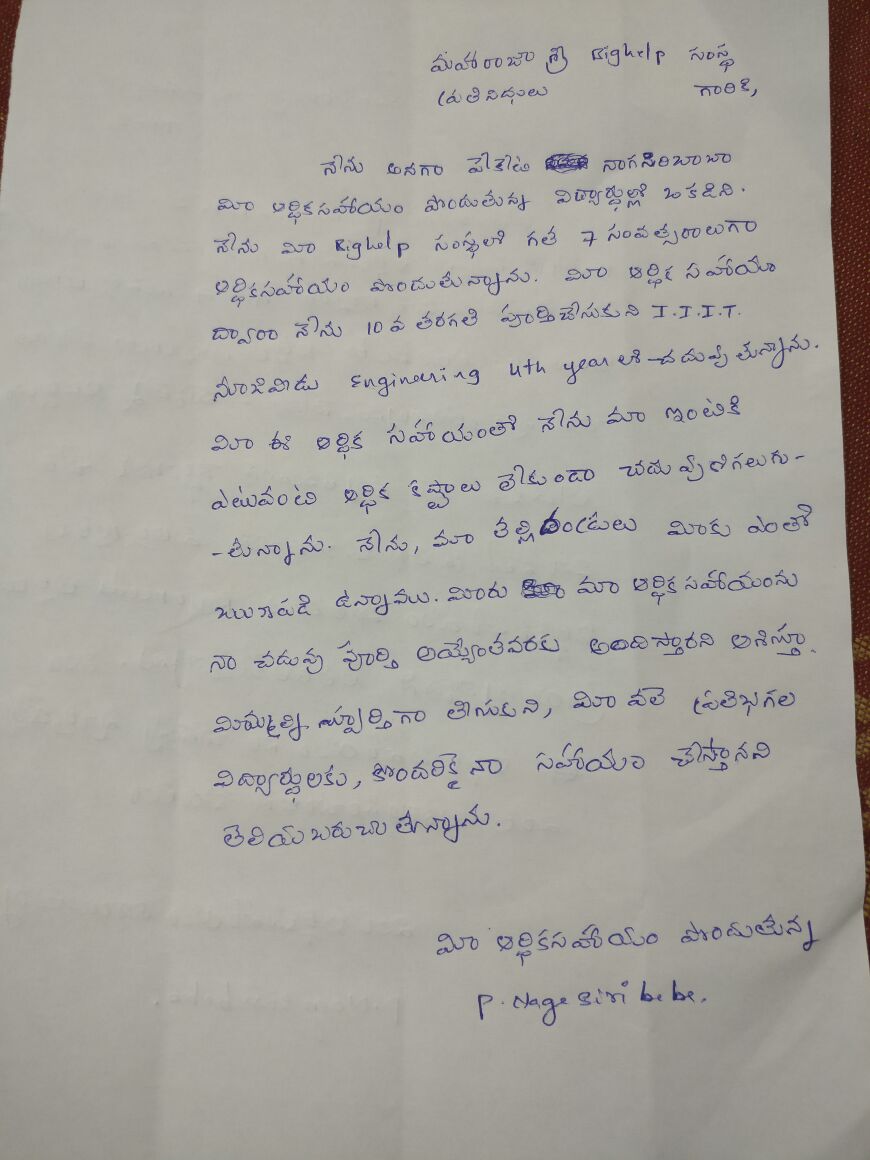 మహారాజా శ్రీ Righelp సంస్థ
ప్రతినిధులు గారికి,
నేను అనగా పేకేటి నాగసిరిబాబా
మీ ఆర్థికసహాయం పొందుతున్న విద్యార్థుల్లో ఒకడిని.
నేను మీ Righelp సంస్థలో గత 7 సంవత్సరాలుగా
ఆర్థికసహాయం పొందుతున్నాను. మీ ఆర్థిక సహాయం
ద్వారా నేను 10 వ తరగతి పూర్తిచేసుకుని I.I.I.T.
నూజివీడు Engineering 4th year లో చదువుతున్నాను.
మీ ఈ ఆర్థిక సహాయంతో నేను మా ఇంటికి
ఎటువంటి ఆర్థిక కష్టాలు లేకుండా చదువుకోగలుగు-
-తున్నాను. నేను, మా తల్లిదండ్రులు మీకు ఎంతో
ఋణపడి ఉన్నాము. మీరు మా ఆర్థికసహాయంను
నా చదువు పూర్తి అయ్యేంతవరకు అందిస్తారని ఆశిస్తూ
మిమ్మల్ని స్ఫూర్తిగా తీసుకుని, మీ వలె ప్రతిభగల
విద్యార్థులకు, కొందరికైనా సహాయం చేస్తానని
తెలియబరుచుతున్నాను.
మీ ఆర్థికసహాయం పొందుతున్న
P. Naga Siri baba.